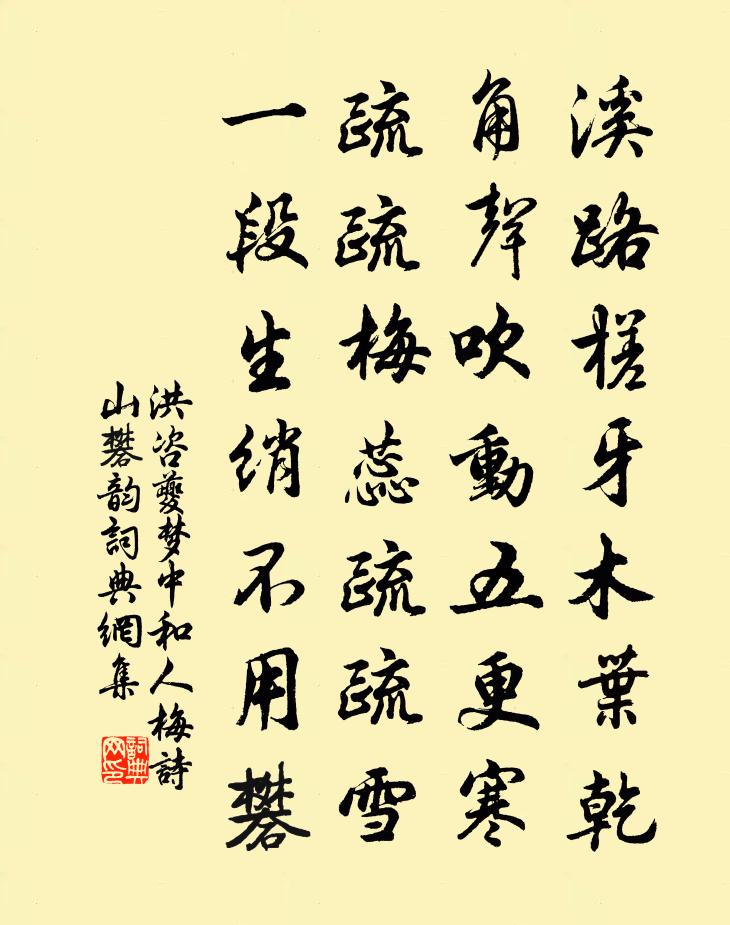 溪路槎牙木葉乾
角聲吹動五更寒
疏疏梅蕊疏疏雪
一段生綃不用礬
洪咨夔梦中和人梅詩
山礬韵詞典網集
詞典网印